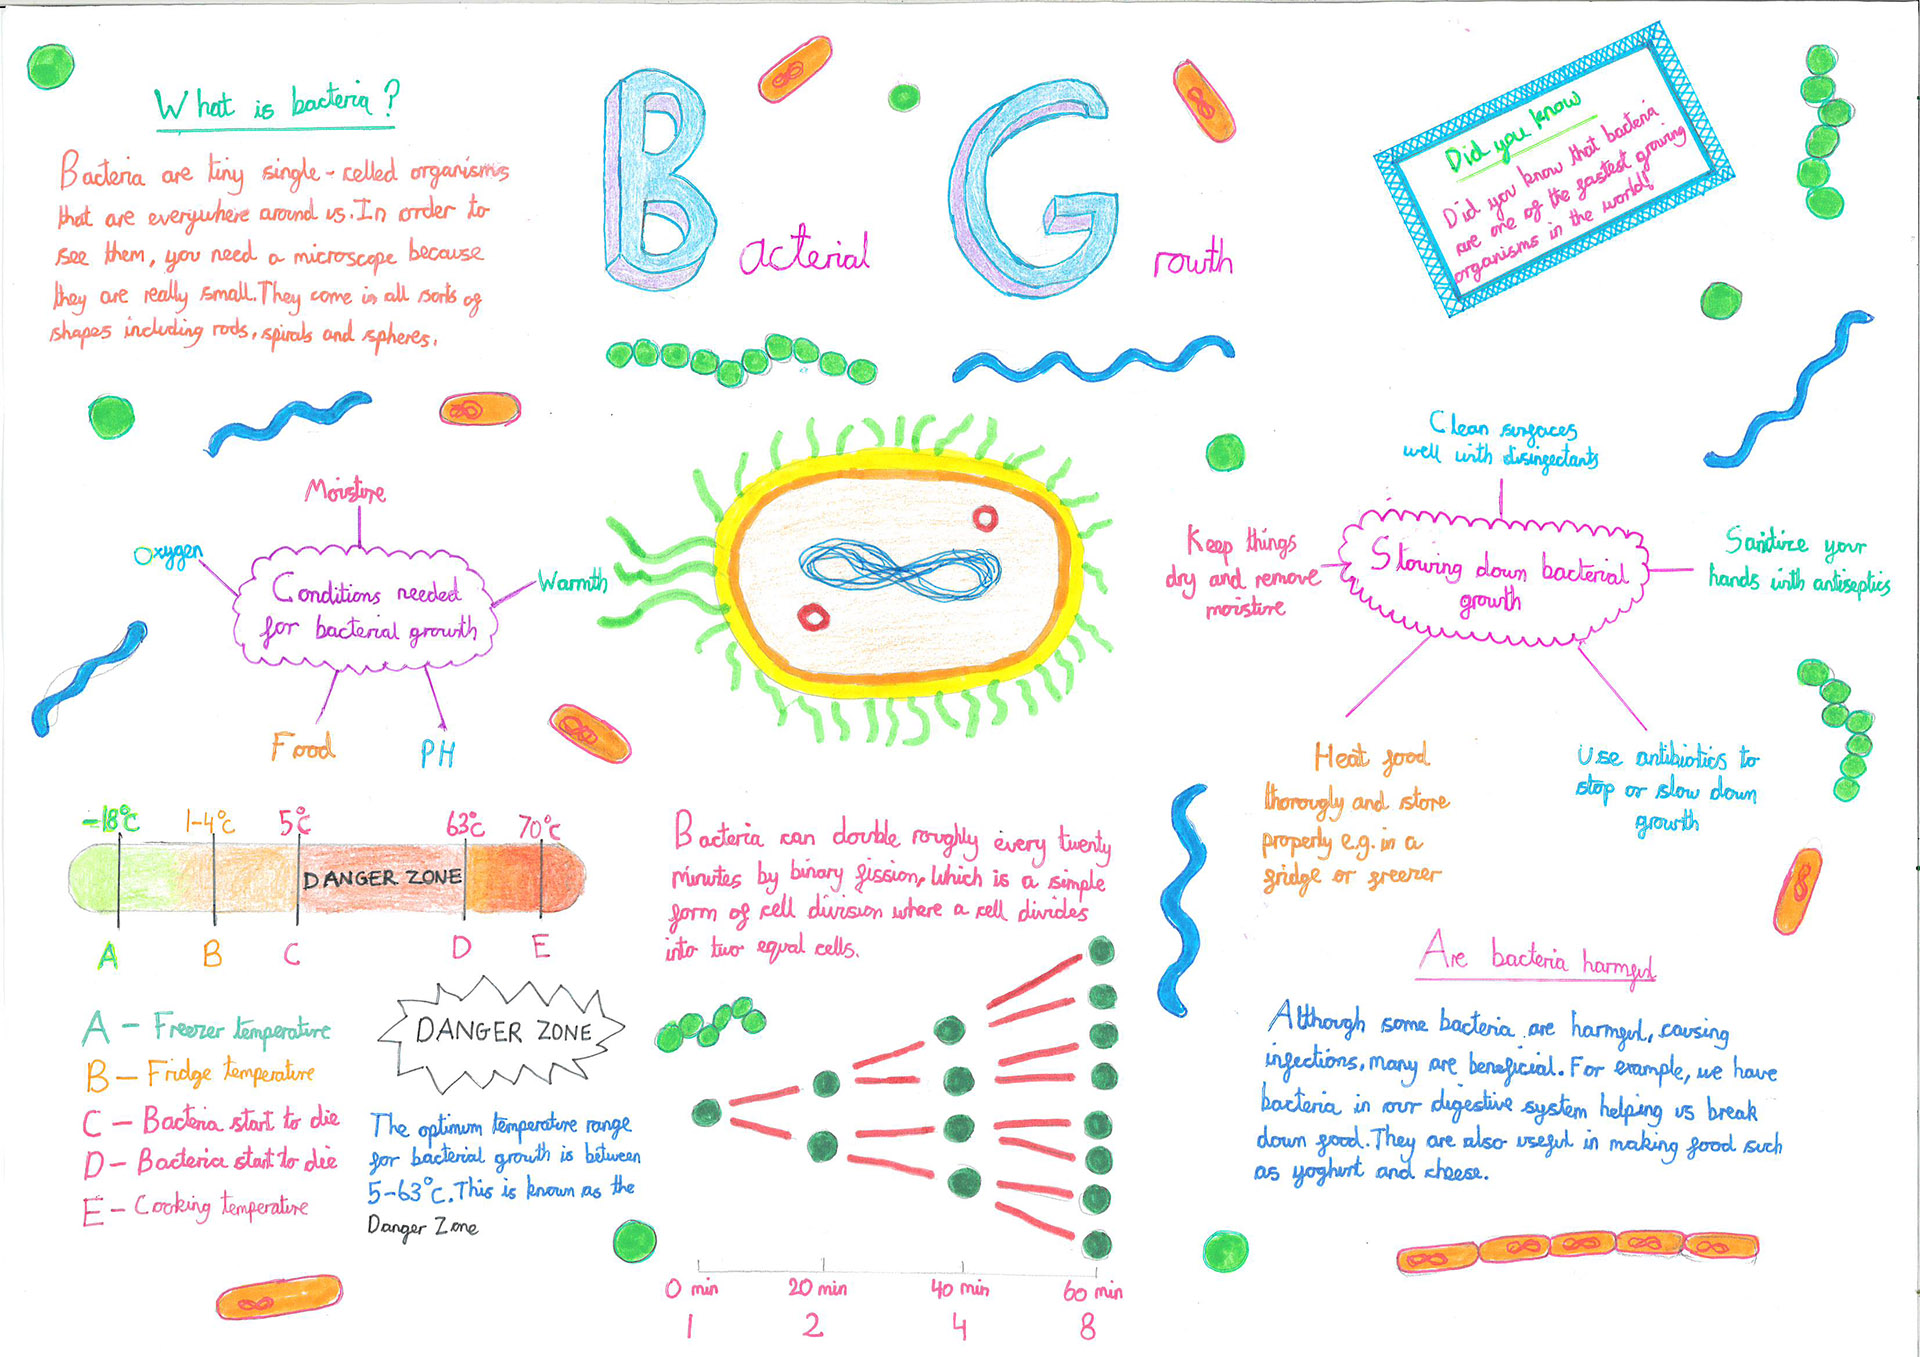 What is bacteria?
Bacteria are tiny single-celled organisms
that are everywhere around us. In order to
see them, you need a microscope because
they are really small. They come in all sorts of
shapes including rods, spirals and spheres.
Bacterial Growth
Did you know
Did you know that bacteria
are one of the fastest growing
organisms in the world!
Moisture
Oxygen
Warmth
Conditions needed
for bacterial growth
Food
PH
Clean surfaces
well with disinfectants
Keep things
dry and remove
moisture
Slowing down bacterial
growth
Sanitize your
hands with antiseptics
Heat food
thorougly and store
properly e.g. in a
fridge or freezer
Use antibiotics to
stop or slow down
growth
-18°c 1-4°c 5°c 63°c 70°c
DANGER ZONE
A B C D E
A - Freezer temperature
B - Fridge temperature
C - Bacteria start to die
D - Bacteria start to die
E - Cooking temperature
DANGER ZONE
The optimum temperature range
for bacterial growth is between
5-63°c. This is known as the
Danger Zone
Bacteria can double roughly every twenty
minutes by binary fission, which is a simple
form of cell division where a cell divides
into two equal cells.
0 min 20 min 40 min 60 min
1 2 4 8
Are bacteria harmful
Although some bacteria are harmful, causing
infections, many are beneficial. For example, we have
bacteria in our digestive system helping us break
down food. They are also useful in making food such
as yoghurt and cheese.